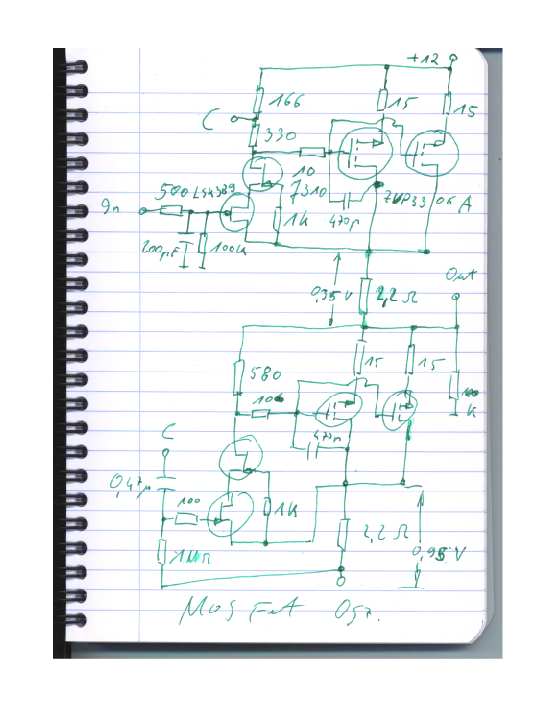 +12
166
15
15
C
330
10
500 LSK389
J310
In
1K
470p
ZVP3306 A
200pF
100k
0,35 V
2,2 Ω
Out
580
15
15
100
K
C
470p
0,47µ
100
1K
2,2 Ω
0,95 V
MosFet